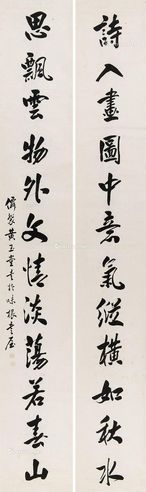 詩入畫圖中意氣縱橫如秋水
思飄雲物外文情淡蕩若春山
黃玉堂書於味根書屋